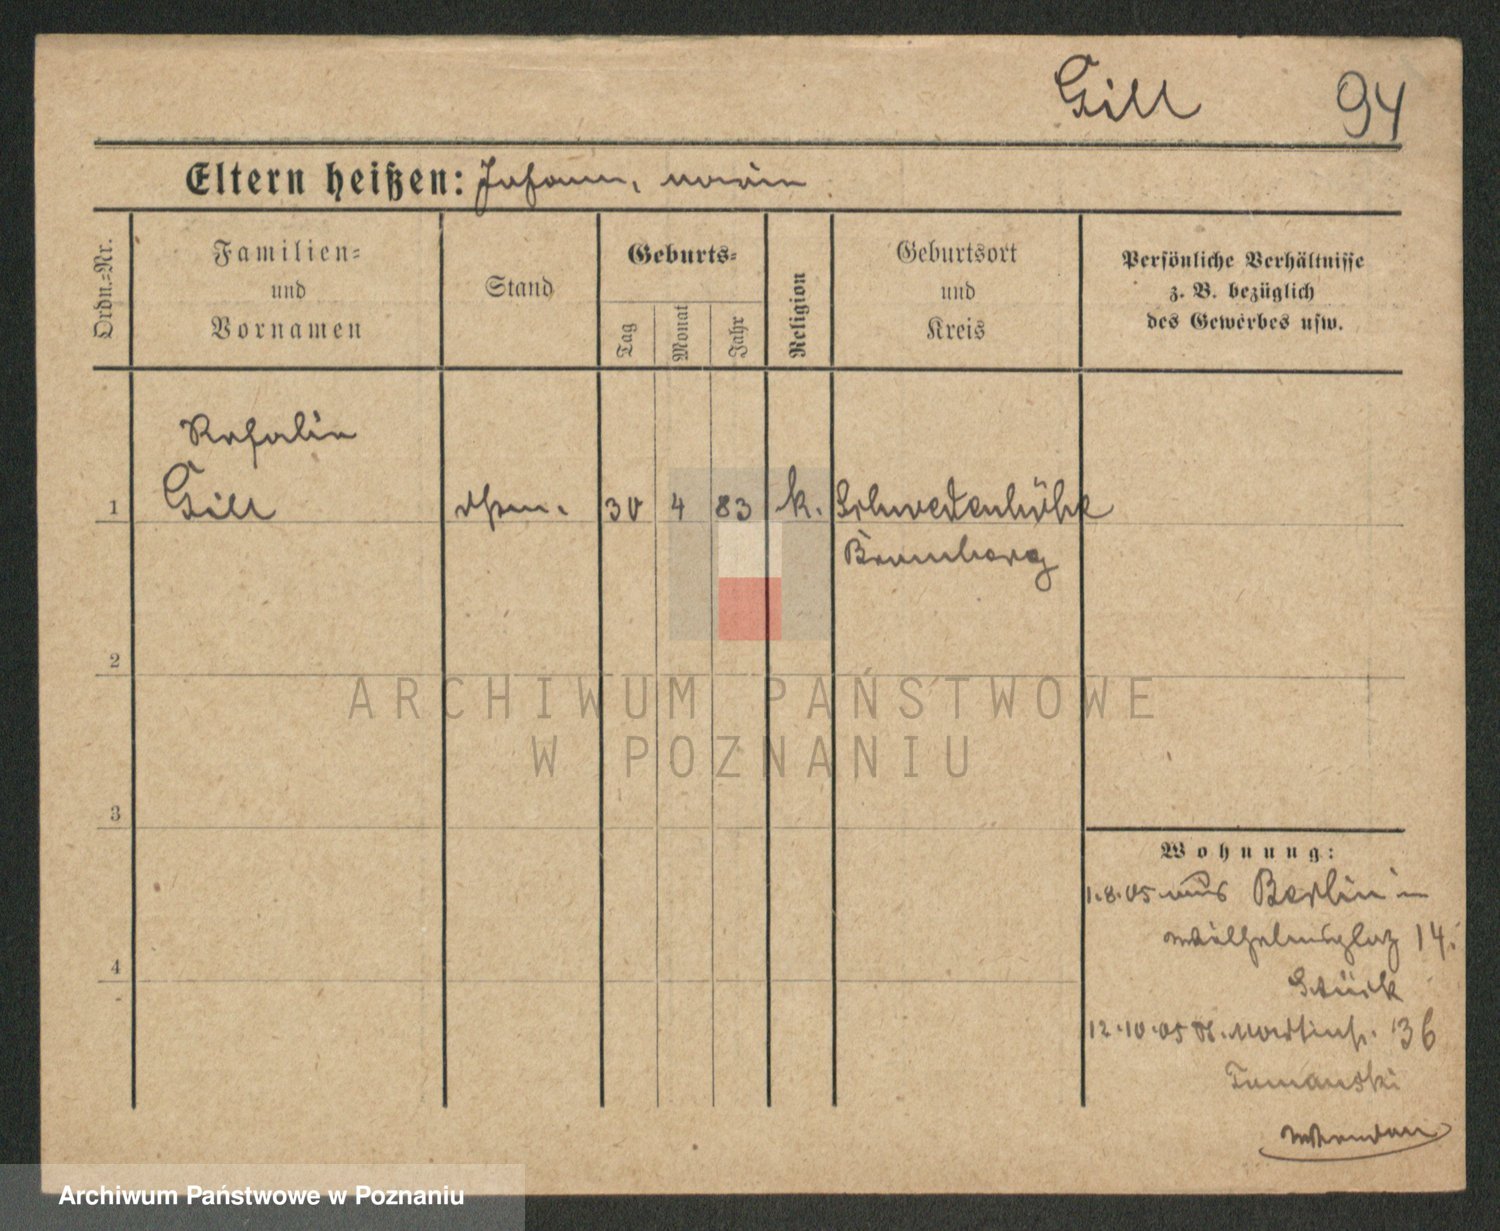 Gill 94
Eltern heißen: Johann, Marie
Ordn.-Nr.
Familien-
und
Vornamen
Stand
Geburts-
Tag
Monat
Jahr
Religion
Geburtsort
und
Kreis
Persönliche Verhältnisse
z. B. bezüglich
des Gewerbes usw.
Rosalie
1 Gill 30 4 83 k. Schwedenhöhe
Bromberg
2
ARCHIWUM PAŃSTWOWE
W POZNANIU
3
Wohnung:
1.8.05 aus Berlin in
Wilhelmsplaz 14.
Stück
4
12.10.05 St. Martinstr. 36
Tomanski
Archiwum Państwowe w Poznaniu